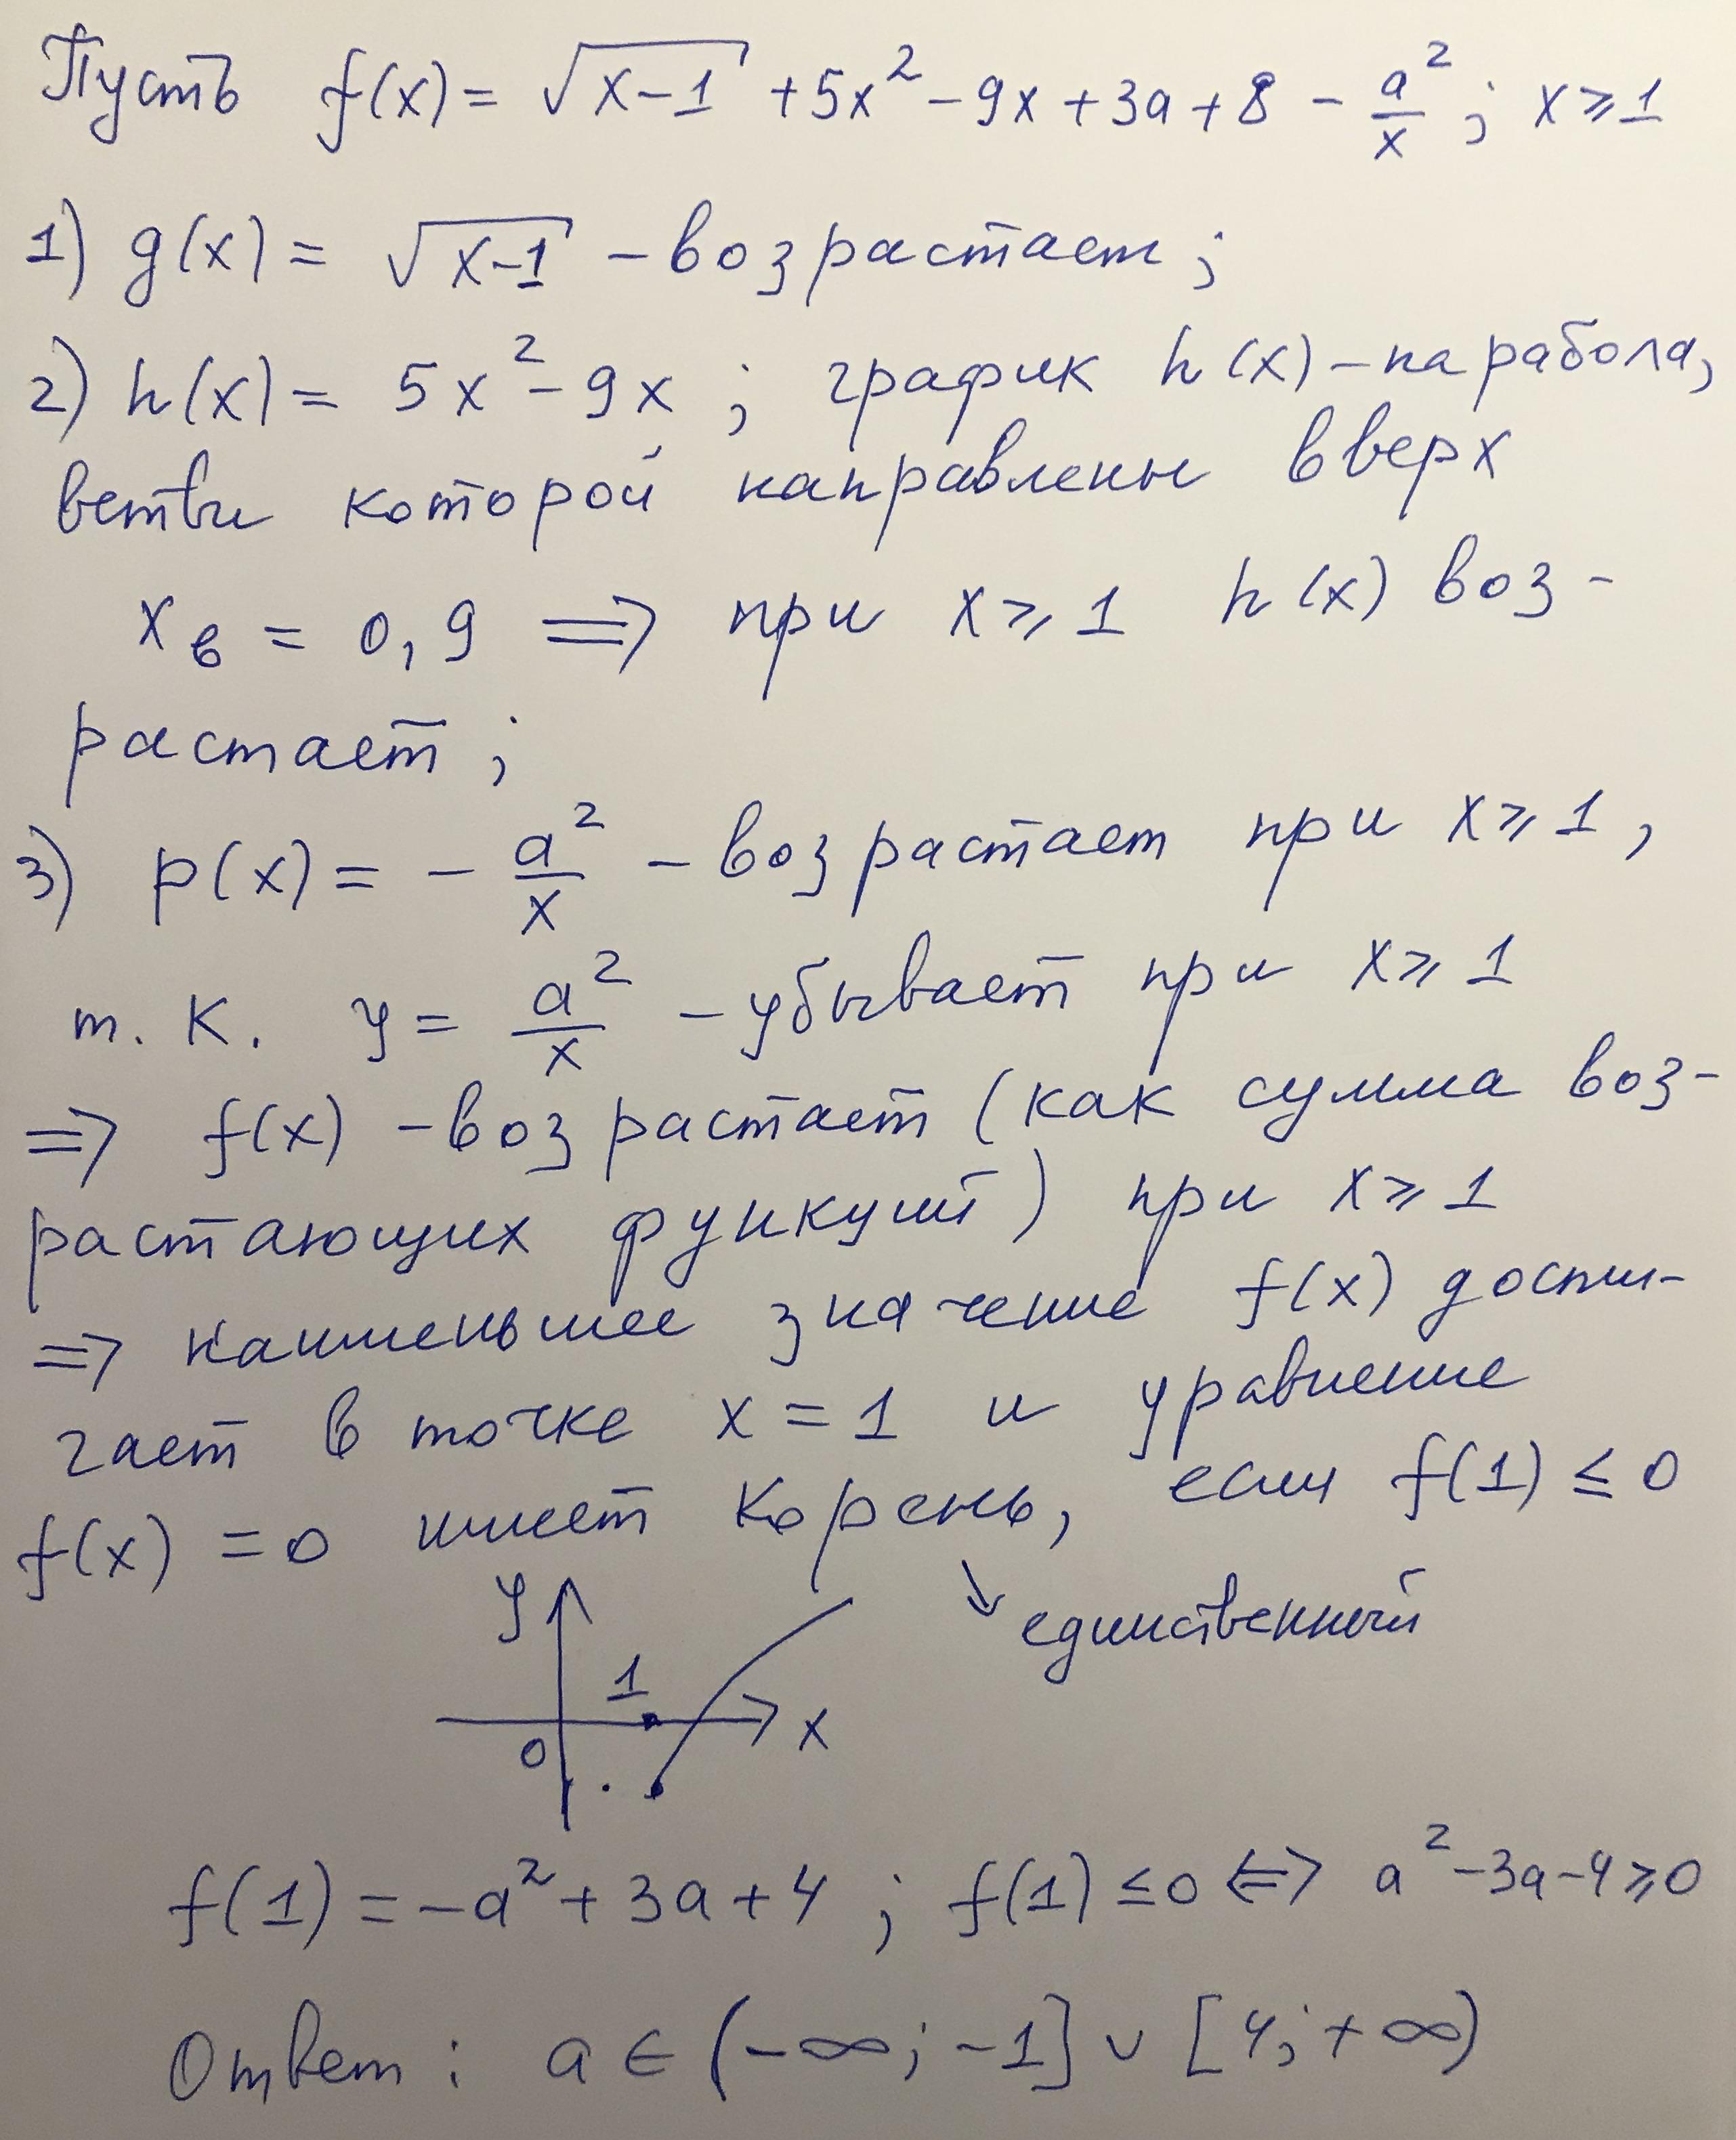 Пусть f(x) = √(x-1) + 5x² - 9x + 3a + 8 - a²/x ; x ⩾ 1
1) g(x) = √(x-1) - возрастает ;
2) h(x) = 5x² - 9x ; график h(x) - парабола,
ветви которой направлены вверх
x_в = 0,9 ⟹ при x ⩾ 1 h(x) воз-
растает ;
3) p(x) = - a²/x - возрастает при x ⩾ 1 ,
т. к. y = a²/x - убывает при x ⩾ 1
⟹ f(x) - возрастает (как сумма воз-
растающих функций) при x ⩾ 1
⟹ наименьшее значение f(x) дости-
гает в точке x = 1 и уравнение
f(x) = 0 имеет корень, если f(1) ≤ 0
↘ единственный
y
1
0
x
f(1) = -a² + 3a + 4 ; f(1) ≤ 0 ⟺ a² - 3a - 4 ⩾ 0
Ответ : a ∈ (-∞; -1] ∪ [4; +∞)